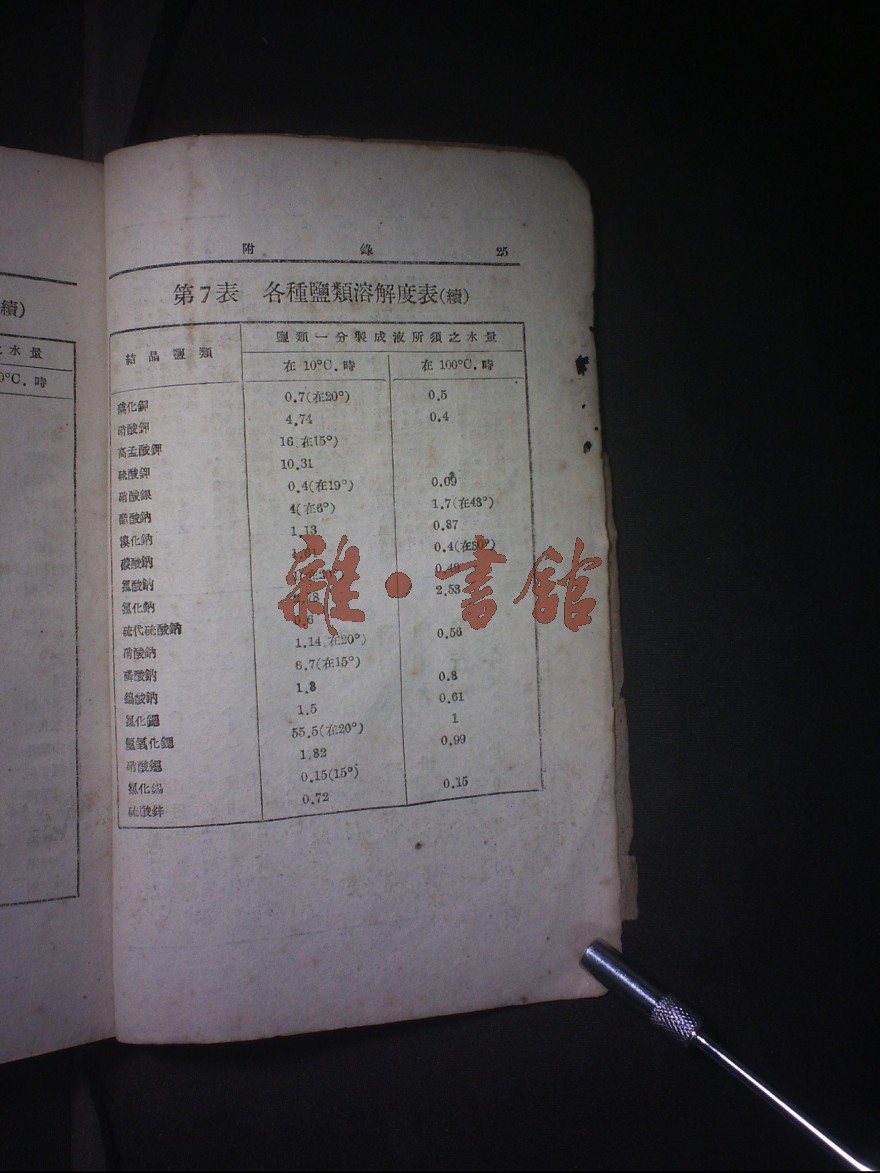 續)
之水量
0°C.時
附 錄 25
第7表 各種鹽類溶解度表(續)
結晶鹽類 鹽類一分製成液所須之水量
在 10°C.時 在 100°C.時
碘化鉀 0.7(在20°) 0.5
硝酸鉀 4.74 0.4
高孟酸鉀 16(在15°)
硫酸鉀 10.31
硝酸銀 0.4(在19°) 0.09
醋酸鈉 4(在6°) 1.7(在48°)
溴化鈉 1.13 0.87
碳酸鈉 0.4(在30°)
氯酸鈉 0.49
氯化鈉 2.53
硫代硫酸鈉
硝酸鈉 1.14(在20°) 0.56
磷酸鈉 6.7(在15°)
鎢酸鈉 1.3 0.8
氯化鍶 1.5 0.61
氫氧化鍶 55.5(在20°) 1
硝酸鍶 1.82 0.99
氯化錫 0.15(15°)
硫酸鋅 0.72 0.15
雜·書館